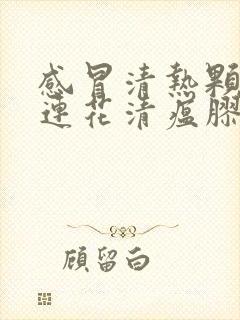 感冒清熱顆
連花清瘟膠
顧留白